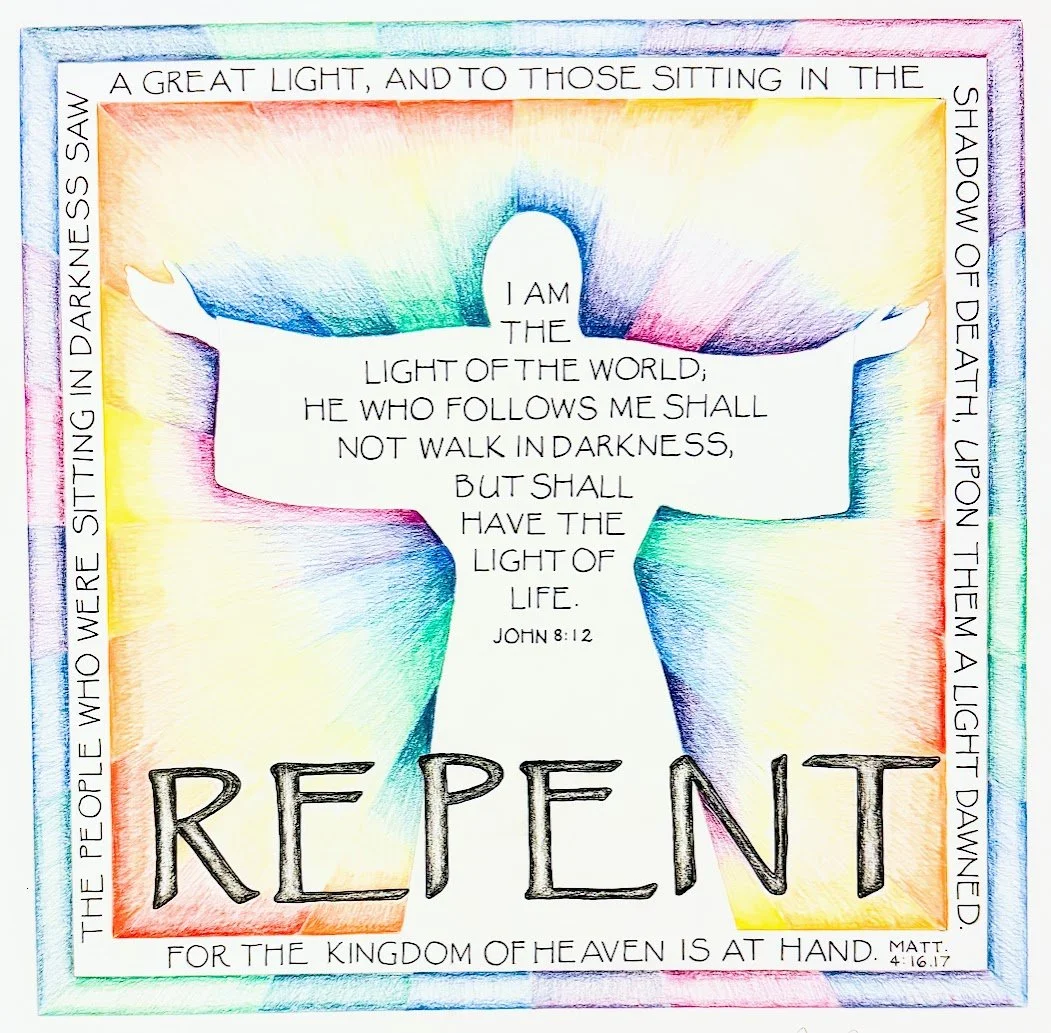 THE PEOPLE WHO WERE SITTING IN DARKNESS SAW
A GREAT LIGHT, AND TO THOSE SITTING IN THE
SHADOW OF DEATH, UPON THEM A LIGHT DAWNED.
I AM
THE
LIGHT OF THE WORLD;
HE WHO FOLLOWS ME SHALL
NOT WALK IN DARKNESS,
BUT SHALL
HAVE THE
LIGHT OF
LIFE.
JOHN 8:12
REPENT
FOR THE KINGDOM OF HEAVEN IS AT HAND.
MATT.
4:16.17